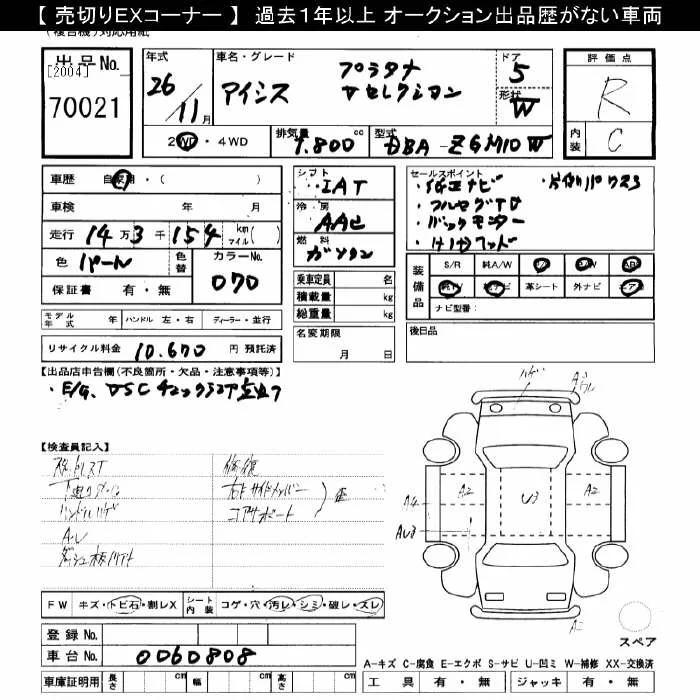 【 売切りEXコーナー 】 過去1年以上 オークション出品歴がない車両
(複合機)対応用紙
出品No.
[2004]
70021
年式
26年
11月
車名・グレード
アイシス
プラタナ
Vセレクション
ドア
5
形状
W
評価点
R
内装
C
2WD・4WD
排気量
1.800 cc
型式
DBA-ZGM10W
車歴 自家用・( )
車検 年 月
走行 14万3千154 km マイル( )
色 パール
色替
カラーNo.
070
保証書 有・無
シフト
IAT
冷房
AAC
燃料
ガソリン
乗車定員 名
積載量 kg
総重量 kg
セールスポイント
・純正ナビ ・片側パワスラ
・フルセグTV
・バックモニター
装備品
S/R 純A/W P/S P/W ABS
純TV 純ナビ 革シート 外ナビ エアB
ナビ型番:
モデル年式 年 ハンドル 左・右 ディーラー・並行
名変期限
月 日
後日品
リサイクル料金 10.670 円 預託済
【出品店申告欄(不良箇所・欠品・注意事項等)】
・E/G、VSCチェックランプ点灯
【検査員記入】
修復
右Fサイドメンバー
コアサポート
歪
ハンドルハゲ
A.U
A2
U3
A2
A4
AU3
FW キズ・トビ石・割レX
シート内装 コゲ・穴・汚レ・シミ・破レ・ズレ
登録No.
車台No. 0060808
車庫証明用 長さ cm 幅 cm 高さ cm
スペア
A-キズ C-腐食 E-エクボ S-サビ U-凹ミ W-補修 XX-交換済
工具 有・無 ジャッキ 有・無